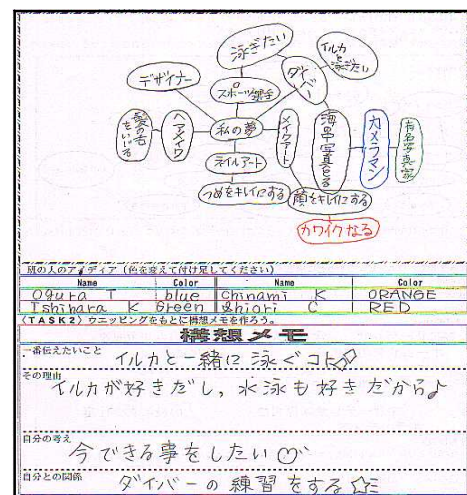 泳ぎたい
イルカと泳ぎたい
デザイナー
スポーツ選手
ダイバー
髪の毛をいじる
ヘアメイク
私の夢
メイクアート
海の写真をとる
カメラマン
有名写真家
ネイルアート
つめをキレイにする
顔をキレイにする
カワイクなる
班の人のアイディア（色を変えて付け足してください）
Name Color Name Color
Ogura T blue Chinami K ORANGE
Ishihara K Green Shiori C RED
〈TASK2〉ウェッビングをもとに構想メモを作ろう。
構想メモ
一番伝えたいこと
イルカと一緒に泳ぐコト
その理由
イルカが好きだし，水泳も好きだから♪
自分の考え
今できる事をしたい
自分との関係
ダイバーの練習をする